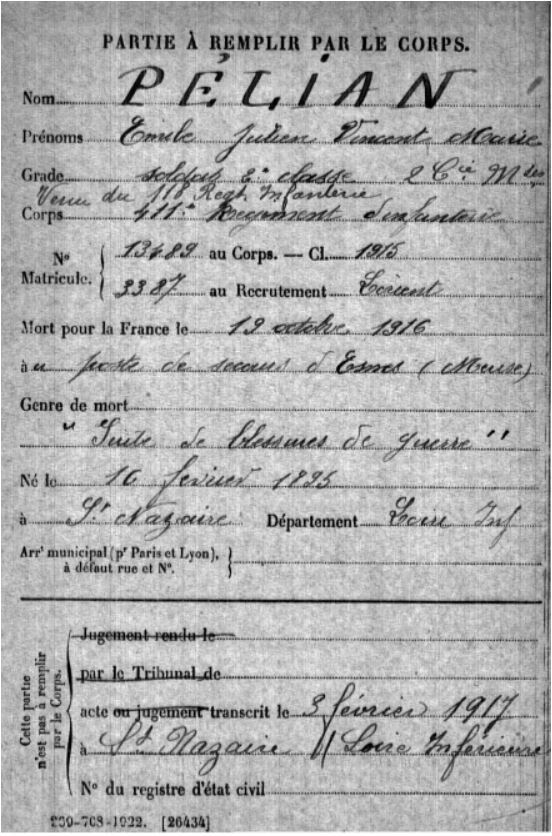 PARTIE À REMPLIR PAR LE CORPS.
Nom PÉLIAN
Prénoms Emile Julien Vincent Marie
Grade soldat 2e classe 2 Cie Mses
Venu du 116 Regt Infanterie
Corps 411e Régiment d'infanterie
No Matricule. 13489 au Corps. — Cl. 1915
3387 au Recrutement Lorient
Mort pour la France le 19 octobre 1916
à u poste de secours d'Esnes (Meuse)
Genre de mort
"Suite de blessures de guerre"
Né le 16 février 1895
à St Nazaire Département Loire Inf
Arrt municipal (pr Paris et Lyon),
à défaut rue et No.
Cette partie n'est pas à remplir par le Corps.
Jugement rendu le
par le Tribunal de
acte ou jugement transcrit le 3 février 1917
à St Nazaire // Loire Inférieure
No du registre d'état civil
-708-1922. [26434]